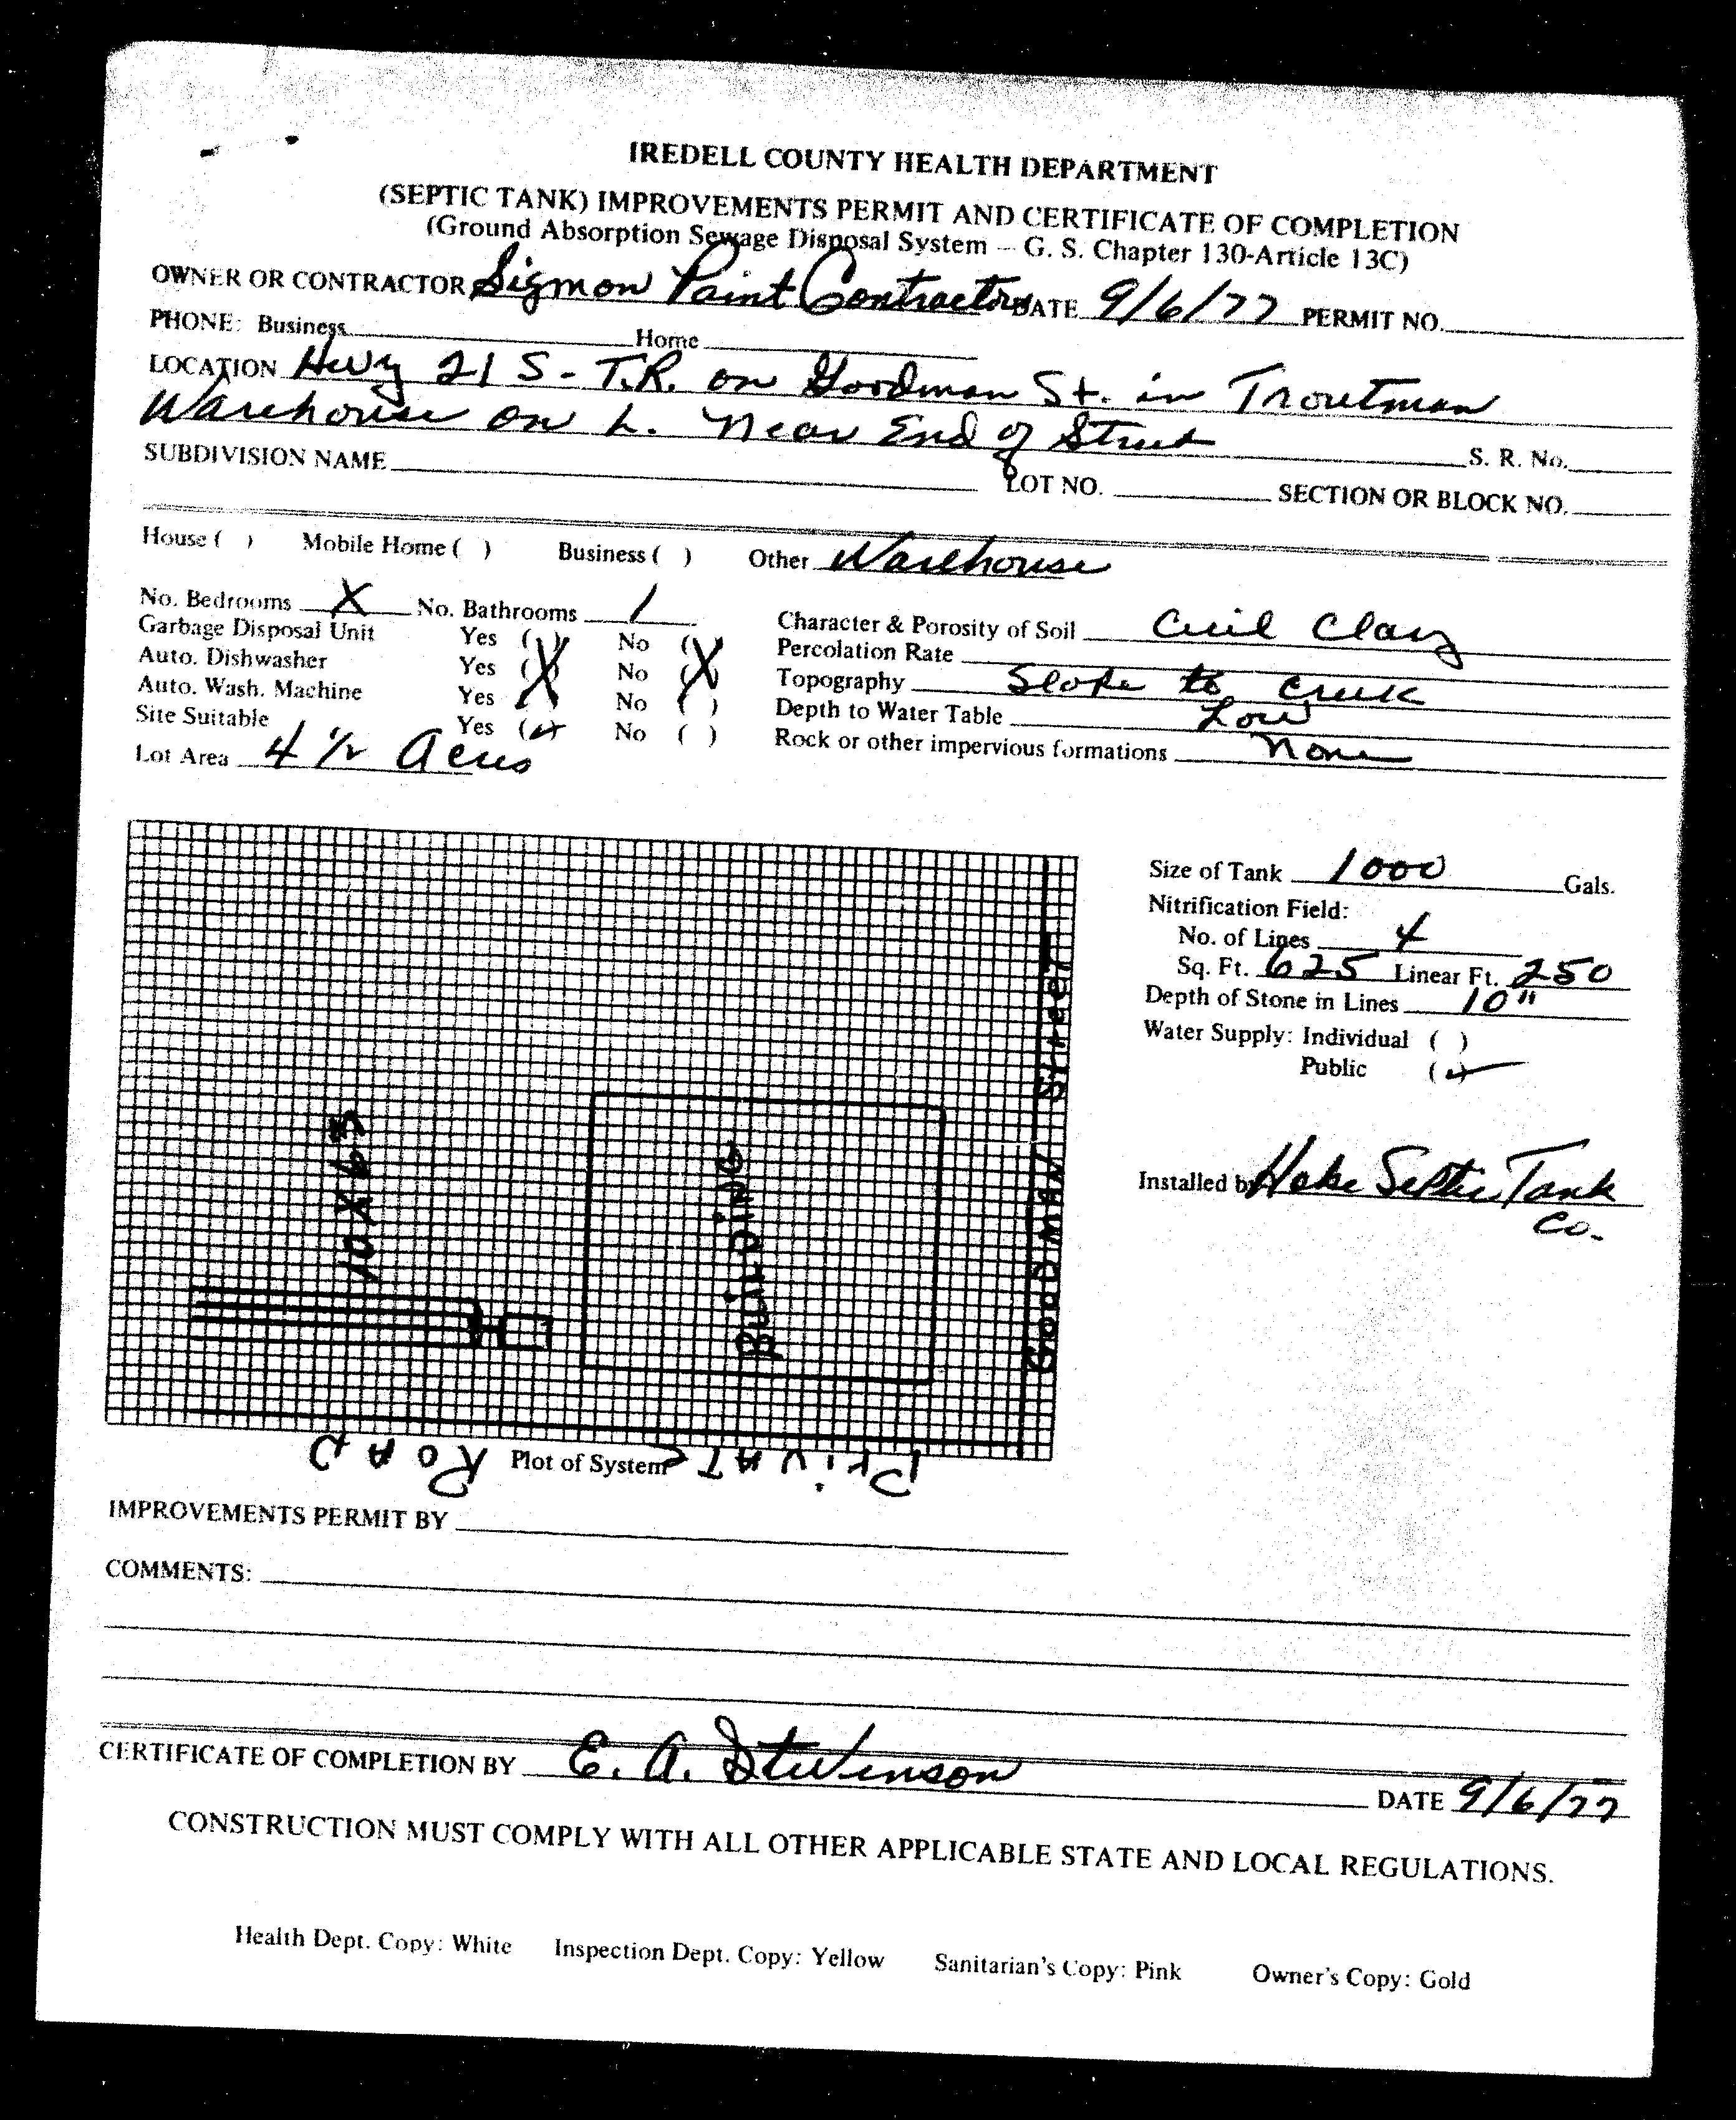 IREDELL COUNTY HEALTH DEPARTMENT
(SEPTIC TANK) IMPROVEMENTS PERMIT AND CERTIFICATE OF COMPLETION
(Ground Absorption Sewage Disposal System -- G. S. Chapter 130-Article 13C)
OWNER OR CONTRACTOR Sigmon Paint Contractors DATE 9/6/77 PERMIT NO.
PHONE: Business Home
LOCATION Hwy 21 S - T.R. on Goodman St. in Troutman
Warehouse on L. Near End of Street S. R. No.
SUBDIVISION NAME LOT NO. SECTION OR BLOCK NO.
House ( ) Mobile Home ( ) Business ( ) Other Warehouse
No. Bedrooms X No. Bathrooms 1
Garbage Disposal Unit Yes ( ) No ( )
Auto. Dishwasher Yes (X) No (X)
Auto. Wash. Machine Yes ( ) No ( )
Site Suitable Yes (✓) No ( )
Lot Area 4 1/2 Acres
Character & Porosity of Soil Cecil Clay
Percolation Rate
Topography Slope to creek
Depth to Water Table Low
Rock or other impervious formations None
Size of Tank 1000 Gals.
Nitrification Field:
No. of Lines 4
Sq. Ft. 625 Linear Ft. 250
Depth of Stone in Lines 10"
Water Supply: Individual ( )
Public (✓)
Installed by Septic Tank
Co.
10 X 63
BUiLDiNG
GOODMAN Street
PrivATE ROAD
Plot of System
IMPROVEMENTS PERMIT BY
COMMENTS:
CERTIFICATE OF COMPLETION BY E. A. Stevenson DATE 9/6/77
CONSTRUCTION MUST COMPLY WITH ALL OTHER APPLICABLE STATE AND LOCAL REGULATIONS.
Health Dept. Copy: White Inspection Dept. Copy: Yellow Sanitarian's Copy: Pink Owner's Copy: Gold